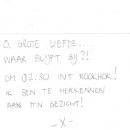 O, GROTE LIEFDE...
WAAR BLIJFT JIJ?!
OM 02.30 INT ROOKHOK!
IK BEN TE HERKENNEN
AAN M'N GEZICHT!
-X-